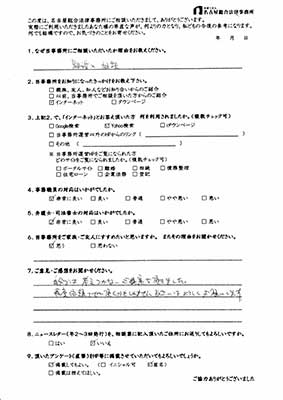 名古屋総合法律事務所
この度は、名古屋総合法律事務所にご相談いただきまして、ありがとうございます。
実際にご利用いただきましたあなた様の率直な声が、何よりの力となり、私どもの今後の参考になります。
何でも結構ですので、お気づきのことをお寄せください。
年 月 日
1. なぜ当事務所にご相談いただいたか理由をお教えください。
2. 当事務所をお知りになったきっかけをお教え下さい。
□ 親族、友人、知人などお知り合いからのご紹介
□ 以前、当事務所でご相談を頂いた方からのご紹介
☑ インターネット □ タウンページ
3. 上記2.で、「インターネット」とお答え頂いた方 何を利用されましたか。(複数チェック可)
□ Google検索 ☑ Yahoo検索 □ iタウンページ
□ 当事務所運営以外のHPからのリンク ( )
□ その他 ( )
※ 当事務所運営HPをご覧になられた方
どのサイトをご覧になられましたか。(複数チェック可)
□ ポータルサイト □ 離婚 □ 相続 □ 債務整理
□ 住宅ローン □ 企業法務 □ 登記
4. 事務職員の対応はいかがでしたか。
☑ 非常に良い □ 良い □ 普通 □ やや悪い □ 悪い
5. 弁護士・司法書士の対応はいかがでしたか。
☑ 非常に良い □ 良い □ 普通 □ やや悪い □ 悪い
6. 当事務所をご家族・ご友人にすすめたいと思いますか。またその理由をお聞かせください。
☑ 思う □ 思わない
7. ご意見・ご感想をお聞かせください。
8. ニュースレター(年2～3回発行)を、相談票に記入頂いたご住所にお送りしてもよろしいですか。
□ はい ☑ いいえ
9. 頂いたアンケート(直筆)をHP等に掲載させていただいてもよろしいでしょうか。
☑ 掲載してもよい。 (□ イニシャル可 ☑ 匿名)
□ 掲載は控えてほしい。
ご協力ありがとうございました